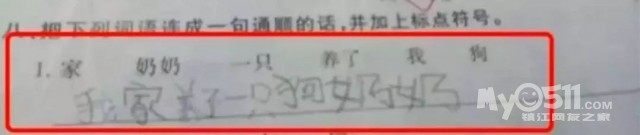 八、把下列词语连成一句通顺的话,并加上标点符号。
1. 家 奶奶 一只 养了 我 狗
我家养了一只狗奶奶
My0511.com
镇江网友之家